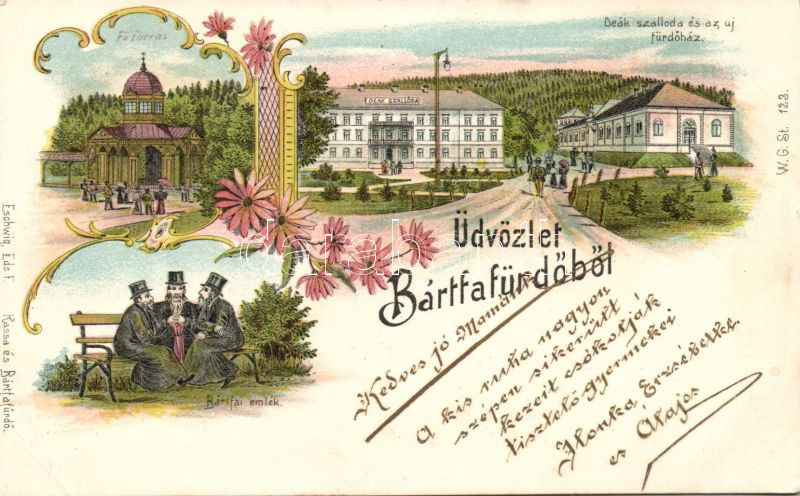 Fő forrás
Deák szalloda és az uj
fürdőház.
DEÁK SZÁLLODA
W. G. St. 123.
Eschwig, Ede F. Kassa és Bártfafürdő.
Üdvözlet
Bártfafürdőből
darabanth
Bártfai emlék.
Kedves jó Mamánk
A kis ruha nagyon
szépen sikerült
kezeit csókolják
tisztelő gyermekei
Ilonka Erzsébetke
es Alajos